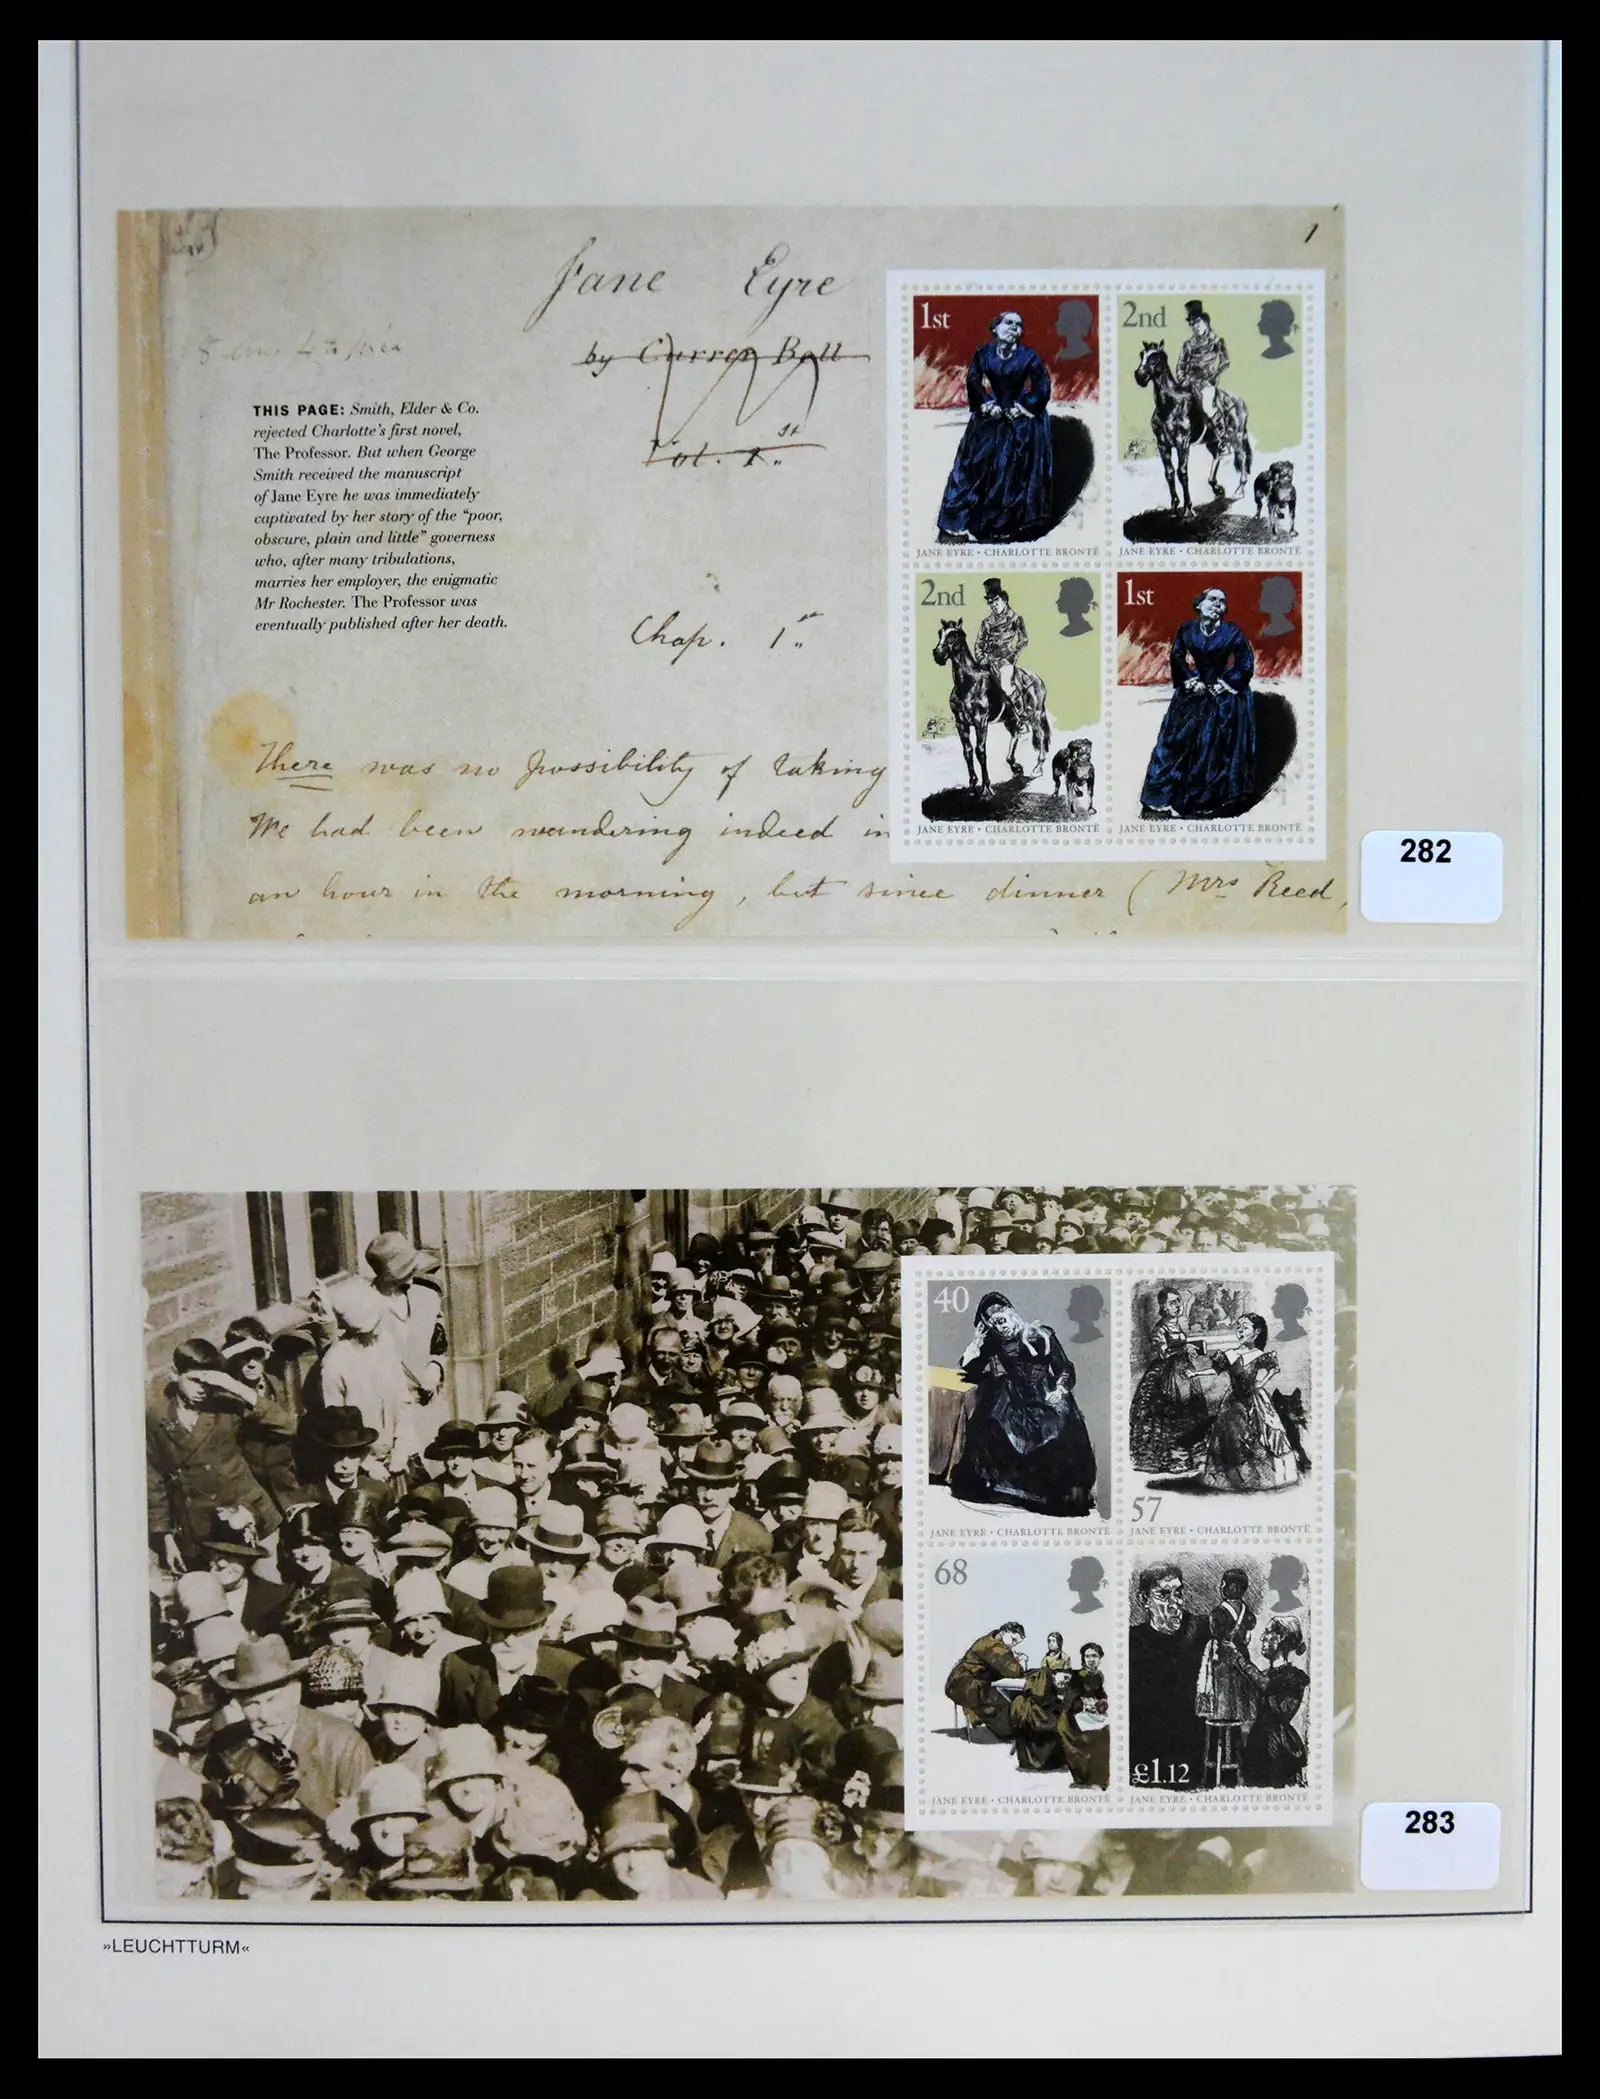 1
Jane Eyre
by Currer Bell
Vol. 1st
THIS PAGE: Smith, Elder & Co.
rejected Charlotte's first novel,
The Professor. But when George
Smith received the manuscript
of Jane Eyre he was immediately
captivated by her story of the "poor,
obscure, plain and little" governess
who, after many tribulations,
marries her employer, the enigmatic
Mr Rochester. The Professor was
eventually published after her death.
Chap. 1st
There was no possibility of taking
We had been wandering indeed in
an hour in the morning, but since dinner (Mrs Reed,
1st
JANE EYRE • CHARLOTTE BRONTË
2nd
JANE EYRE • CHARLOTTE BRONTË
2nd
JANE EYRE • CHARLOTTE BRONTË
1st
JANE EYRE • CHARLOTTE BRONTË
282
40
JANE EYRE • CHARLOTTE BRONTË
57
JANE EYRE • CHARLOTTE BRONTË
68
JANE EYRE • CHARLOTTE BRONTË
£1.12
JANE EYRE • CHARLOTTE BRONTË
283
»LEUCHTTURM«